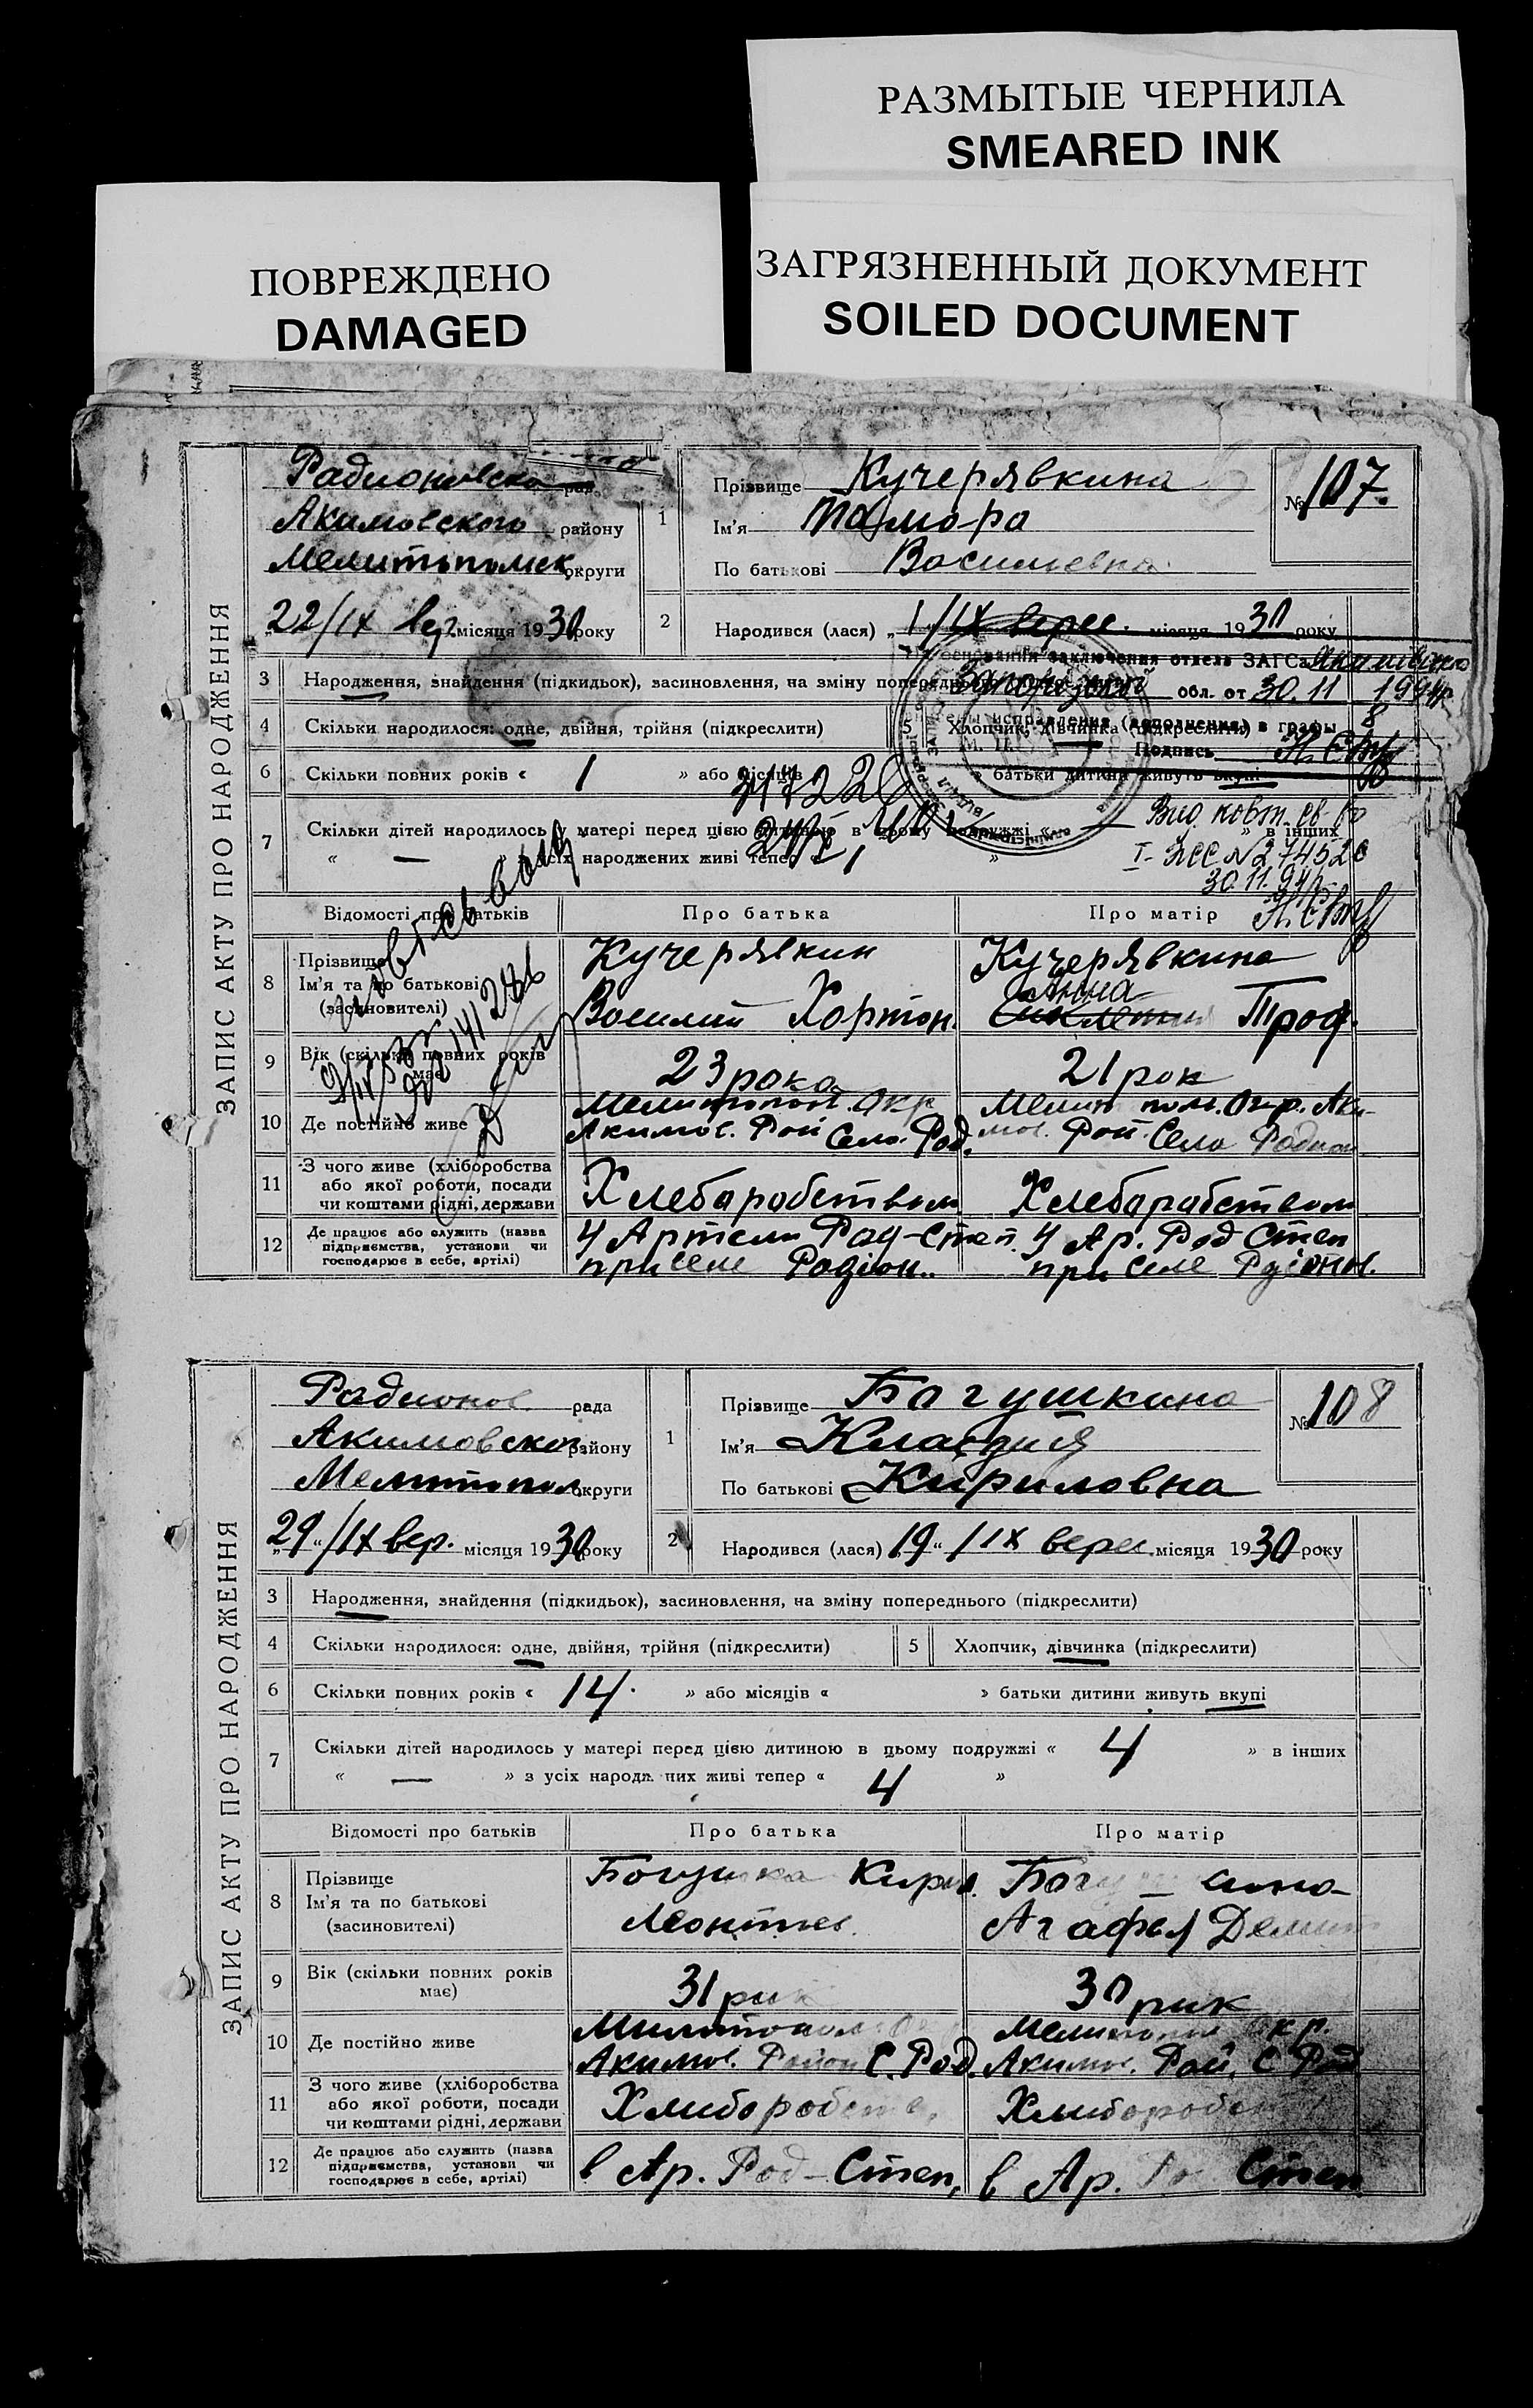 РАЗМЫТЫЕ ЧЕРНИЛА
SMEARED INK
ПОВРЕЖДЕНО
DAMAGED
ЗАГРЯЗНЕННЫЙ ДОКУМЕНТ
SOILED DOCUMENT
ЗАПИС АКТУ ПРО НАРОДЖЕННЯ
Радионовско рад
Акимовского району
Мелитопольск округи
„22/IX вер. місяця 1930 року
1 Прізвище Кучерявкина
Ім'я Тамара
По батькові Васильевна
№ 107.
2 Народився (лася) „1"/IX верес. місяця 1930 року
На основании заключения отдела ЗАГСа
обл. от 30.11 1994р
исправления (дополнения) в графы 8
Подпись
3 Народження, знайдення (підкидьок), засиновлення, на зміну попереднього
4 Скільки народилося: одне, двійня, трійня (підкреслити)
5 Хлопчик, дівчинка (підкреслити)
6 Скільки повних років « 1 » або місяців » батьки дитини живуть вкупі
7 Скільки дітей народилось у матері перед цією дитиною в цьому подружжі « — » в інших
« — » з усіх народжених живі тепер »
Вид. повт. св-во
I-ЖС №274526
30.11.94р.
Відомості про батьків Про батька Про матір
8 Прізвище
Ім'я та по батькові
(засиновителі)
Кучерявкин
Василий Харитон.
Кучерявкина
Анна
Троф.
9 Вік (скільки повних років
має)
23 рока
21 рок
10 Де постійно живе
Мелитопол. Окр
Акимов. Рай Село. Рад.
Мелитопол. Окр. Аки-
мов. Рай. Село Радион
11 З чого живе (хліборобства
або якої роботи, посади
чи коштами рідні, держави
Хлебаробством
Хлебаробством
12 Де працює або служить (назва
підприємства, установи чи
господарює в себе, артілі)
У Артели Рад-Степ.
при селе Радіон..
У Ар. Рад Степ
при Селе Рдіонов.
ЗАПИС АКТУ ПРО НАРОДЖЕННЯ
Радионов. рада
Акимовског району
Мелитопол округи
„29"/IX вер. місяця 1930 року
1 Прізвище Богушкина
Ім'я Клавдия
По батькові Кириловна
№ 108
2 Народився (лася) „19" /IX верес. місяця 1930 року
3 Народження, знайдення (підкидьок), засиновлення, на зміну попереднього (підкреслити)
4 Скільки народилося: одне, двійня, трійня (підкреслити)
5 Хлопчик, дівчинка (підкреслити)
6 Скільки повних років « 14. » або місяців « » батьки дитини живуть вкупі
7 Скільки дітей народилось у матері перед цією дитиною в цьому подружжі « 4 » в інших
« — » з усіх народж них живі тепер « 4 »
Відомості про батьків Про батька Про матір
8 Прізвище
Ім'я та по батькові
(засиновителі)
Кирил.
Леонтьев.
Агафья
9 Вік (скільки повних років
має)
31 рик
30 рик
10 Де постійно живе
Милитопол. Ок
Акимов. Район С. Рад.
Мелитопол Окр.
Акимов. Рай. С Рад
11 З чого живе (хліборобства
або якої роботи, посади
чи коштами рідні, держави
Хлиборобств.
Хлиборобст
12 Де працює або служить (назва
підприємства, установи чи
господарює в себе, артілі)
в Ар. Рад-Степ,
в Ар. Степ.